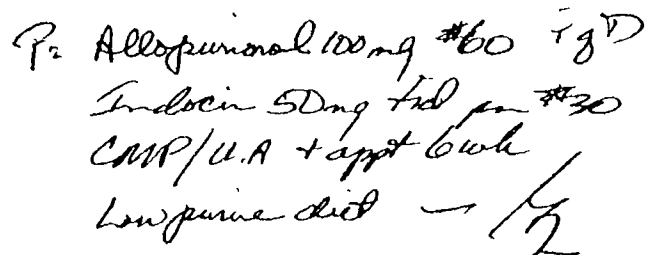 P: Allopurinol 100mg #60 i qD
Indocin 50mg tid prn #30
CMP/U.A + appt 6 wk
Low purine diet —